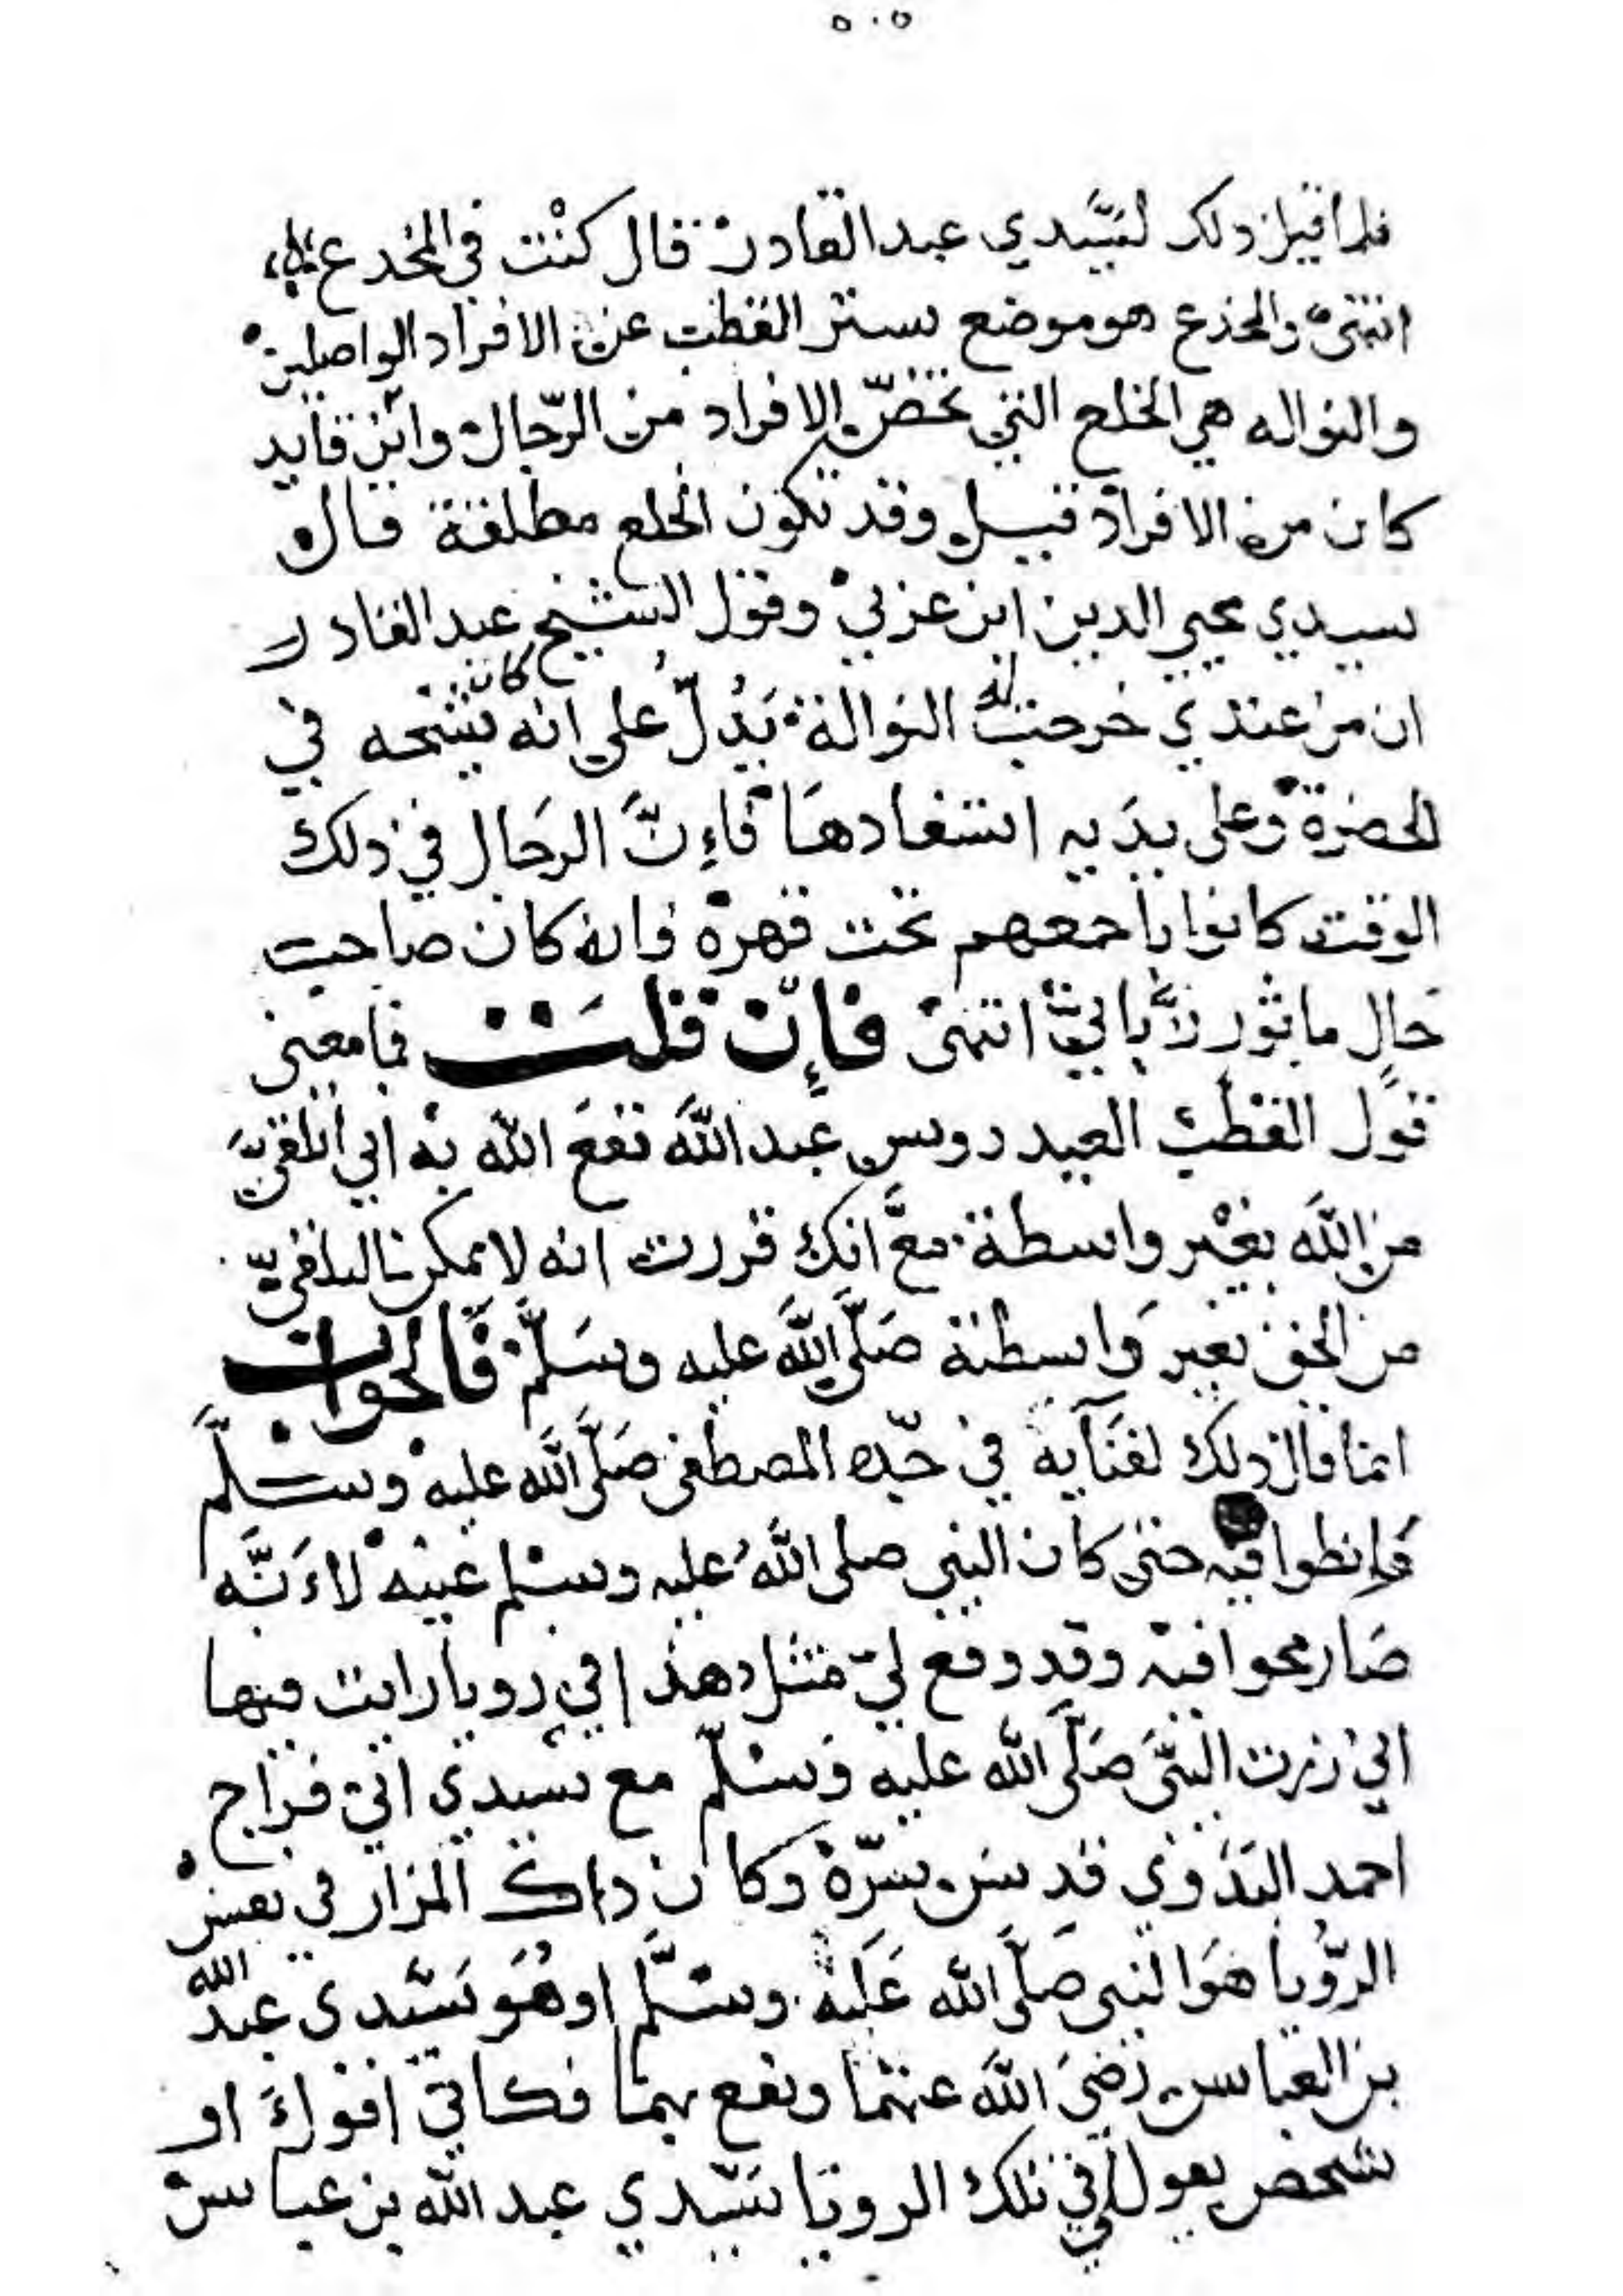 ٥٠٥
فلما قيل ذلك لسيدي عبد القادر قال كنت في المخدع
انتهى والمخدع هو موضع ستر القطب عن الافراد الواصلين
والنواله هي الخلع التي تخص الافراد من الرجال وابن قايد
كان من الافراد قيل وقد تكون الخلع مطلقة قال
سيدي محيي الدين ابن عربي وقول الشيخ عبد القادر
ان من عندي خرجت له النوالة يدل على انه كان شيخه في
الحضرة وعلى يديه استفادها فإن الرجال في ذلك
الوقت كانوا باجمعهم تحت قهره فانه كان صاحب
حال مأثور انتهى فإن قلت فما معنى
قول القطب العيدروس عبد الله نفع الله به اني اتلقى
من الله بغير واسطة مع انك قررت انه لا يمكن التلقي
من الحق بغير واسطة صلى الله عليه وسلم فالجواب
انما قال ذلك لفنآيه في جده المصطفى صلى الله عليه وسلم
فانطوا فيه حتى كان النبي صلى الله عليه وسلم عينه لأنه
صار محوا فيه وقد وقع لي مثل هذا في رويا رايت فيها
اني زرت النبي صلى الله عليه وسلم مع سيدي ابي فراج
احمد البدوي قدس سره وكان ذلك المزار في بعض
الرؤيا هو النبي صلى الله عليه وسلم او هو سيدي عبد الله
بن العباس رضي الله عنهما ونفع بهما فكاني اقول او
شخص يقول لي في تلك الرويا سيدي عبد الله بن عباس